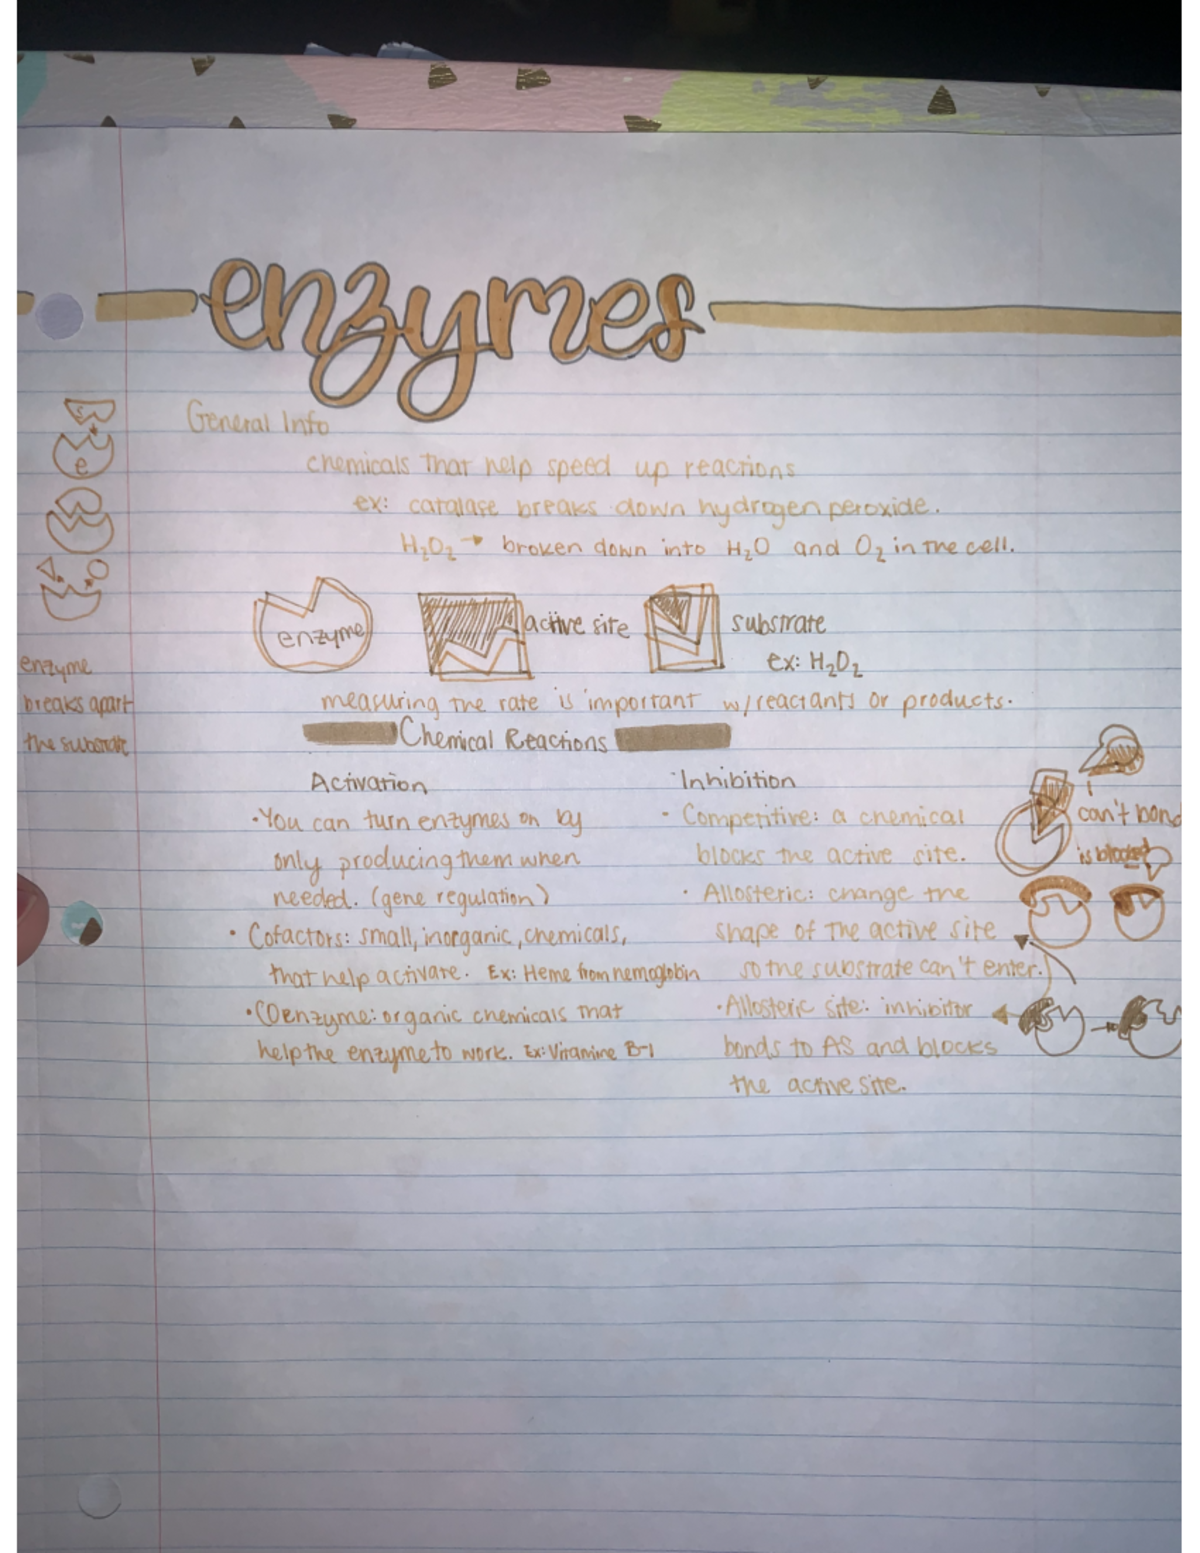 enzymes
General Info
chemicals that help speed up reactions
ex: catalase breaks down hydrogen peroxide.
H₂O₂ → broken down into H₂O and O₂ in the cell.
s
e
enzyme
breaks apart
the substrate
enzyme
active site
substrate
ex: H₂O₂
measuring the rate is important w/reactants or products.
Chemical Reactions
Activation
•You can turn enzymes on by
only producing them when
needed. (gene regulation)
• Cofactors: small, inorganic, chemicals,
that help activate. Ex: Heme from hemoglobin
•Coenzyme: organic chemicals that
help the enzyme to work. Ex: Vitamine B-1
Inhibition
• Competitive: a chemical
blocks the active site.
can't bond
is blocked
• Allosteric: change the
shape of the active site
so the substrate can't enter.
•Allosteric site: inhibitor
bonds to AS and blocks
the active site.